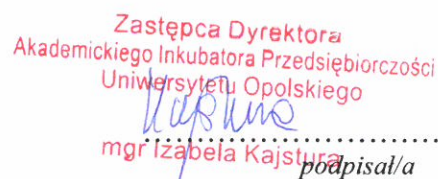 Zastępca Dyrektora
Akademickiego Inkubatora Przedsiębiorczości
Uniwersytetu Opolskiego
Kajstura
........................................
mgr Izabela Kajstura
podpisał/a